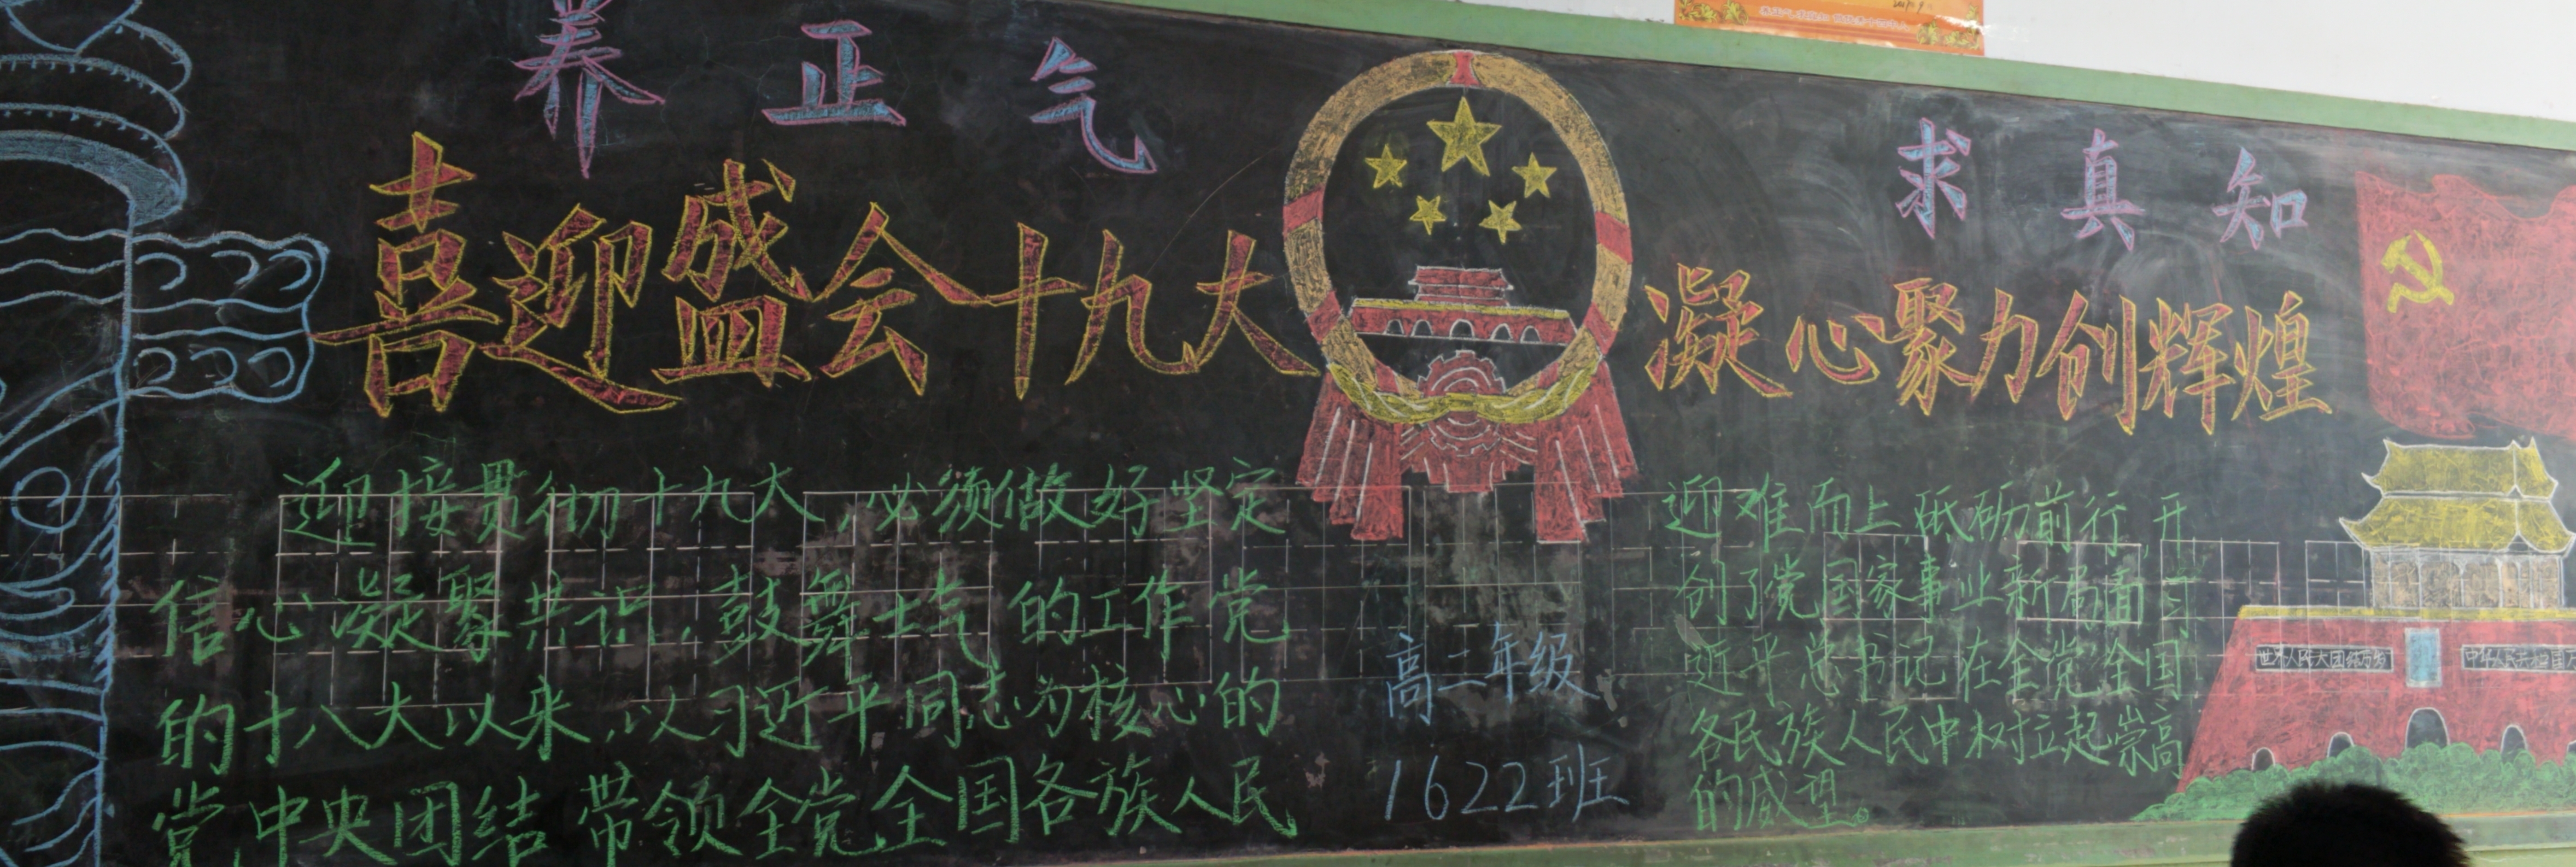 养正气
求真知
喜迎盛会十九大
凝心聚力创辉煌
迎接贯彻十九大,必须做好坚定
信心、凝聚共识,鼓舞士气的工作党
的十八大以来,以习近平同志为核心的
党中央团结带领全党全国各族人民
高二年级
1622班
迎难而上,砥砺前行,开
创了党国家事业新局面习
近平总书记在全党全国
各民族人民中树立起崇高
的威望。
世界人民大团结万岁